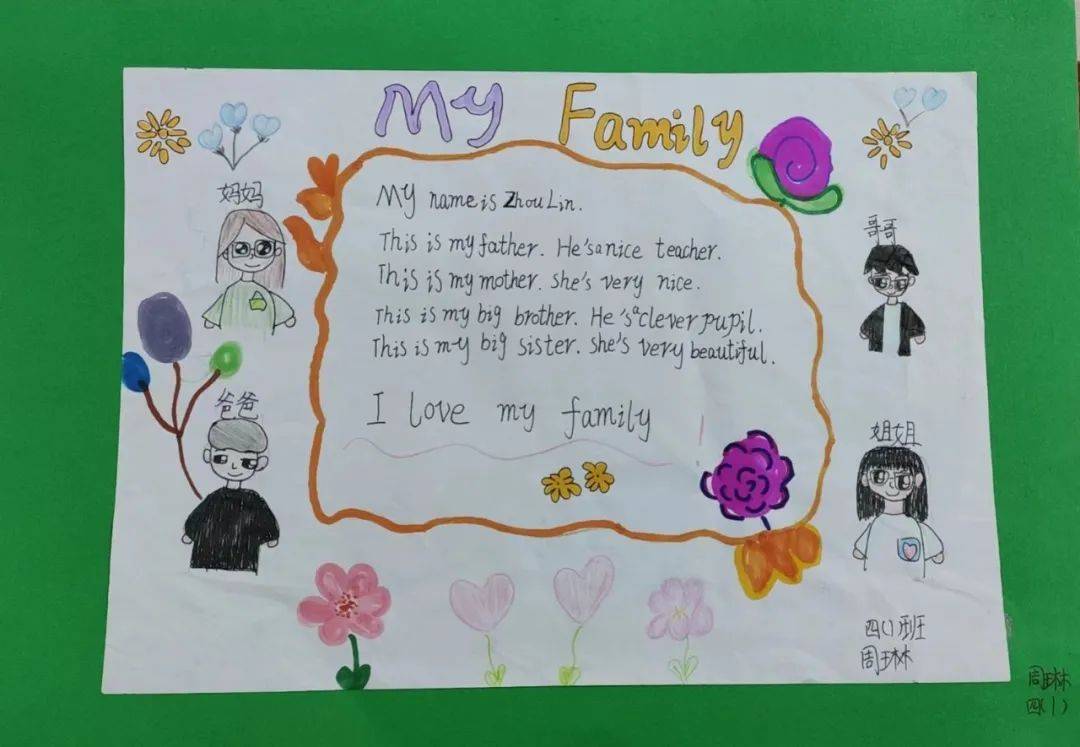 My Family
妈妈
哥哥
My name is Zhou Lin.
This is my father. He's a nice teacher.
This is my mother. She's very nice.
This is my big brother. He's a clever pupil.
This is my big sister. She's very beautiful.
I love my family
爸爸
姐姐
四(1)班
周琳
周琳
四(1)